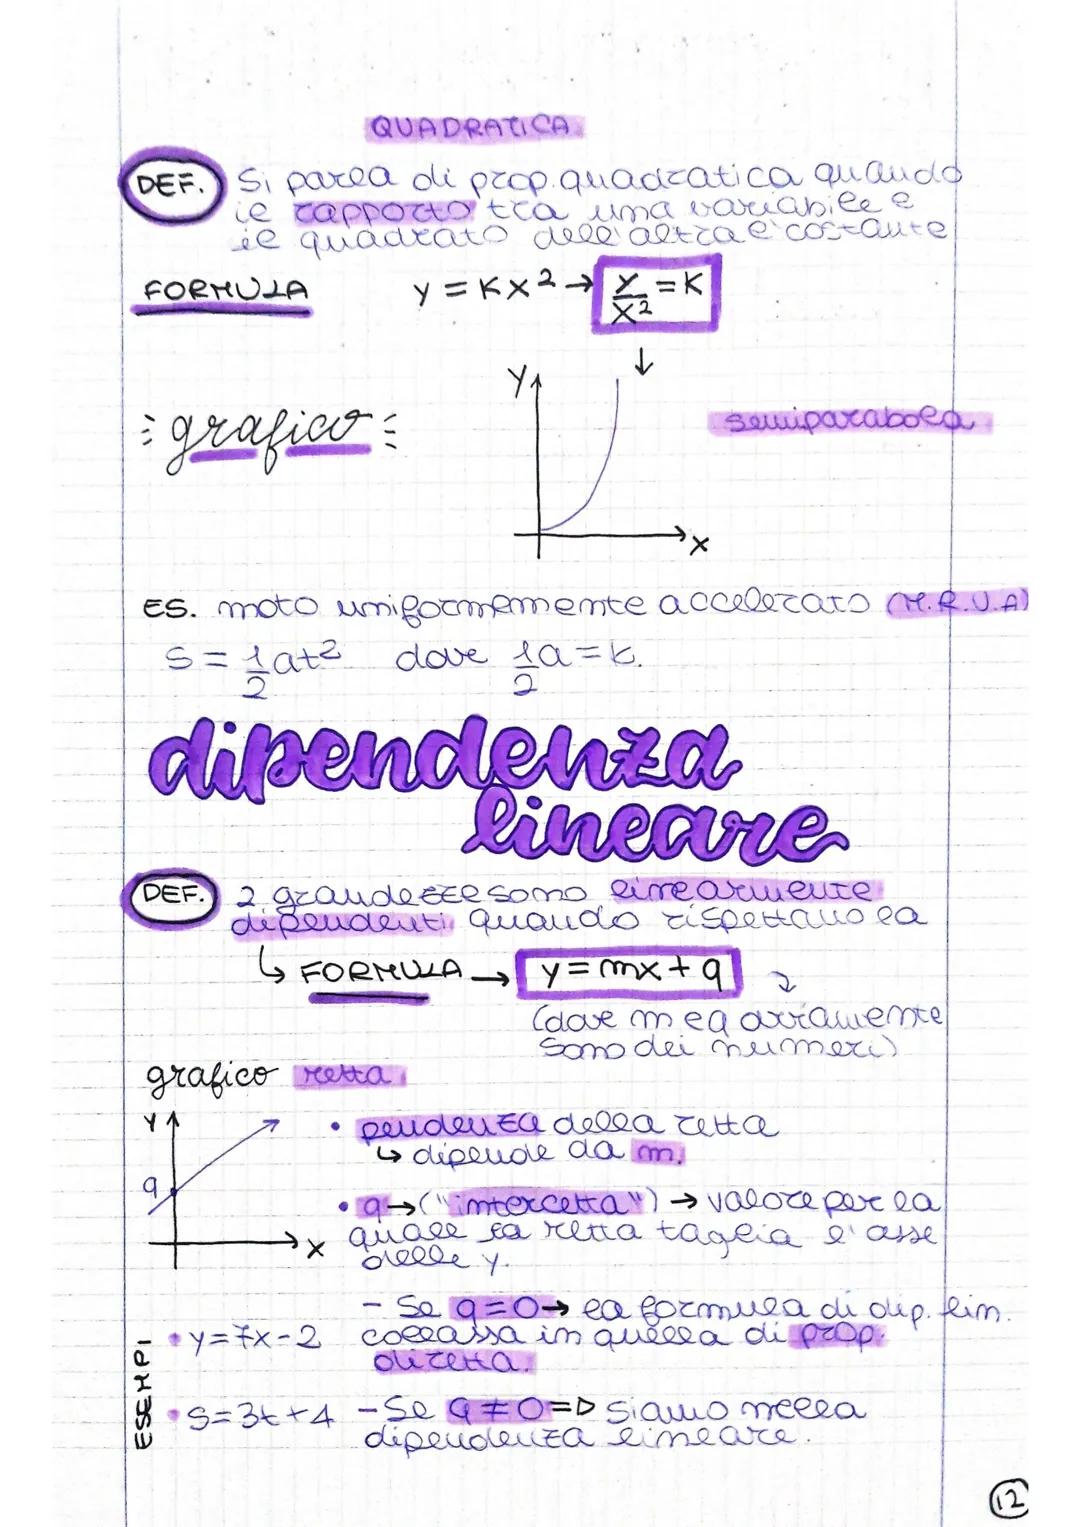 QUADRATICA
DEF. Si parla di prop. quadratica quando
il rapporto tra una variabile e
il quadrato dell'altra è costante
FORMULA y = Kx² → y/x² = K
↓
grafico
Y
semiparabola
x
ES. moto uniformemente accelerato (M.R.U.A)
S = 1/2 at² dove 1/2 a = k.
dipendenza
lineare
DEF. 2 grandezze sono linearmente
dipendenti quando rispettano la
↳ FORMULA → y = mx + q
(dove m e q ovviamente
sono dei numeri)
grafico retta
Y
q
x
• pendenza della retta
↳ dipende da m.
• q → ("intercetta") → valore per la
quale la retta taglia l'asse
delle y.
- Se q = 0 → la formula di dip. lin.
collassa in quella di prop.
diretta.
- Se q ≠ 0 => siamo nella
dipendenza lineare.
ESEMPI
• y = 7x - 2
• S = 3t + 4
12